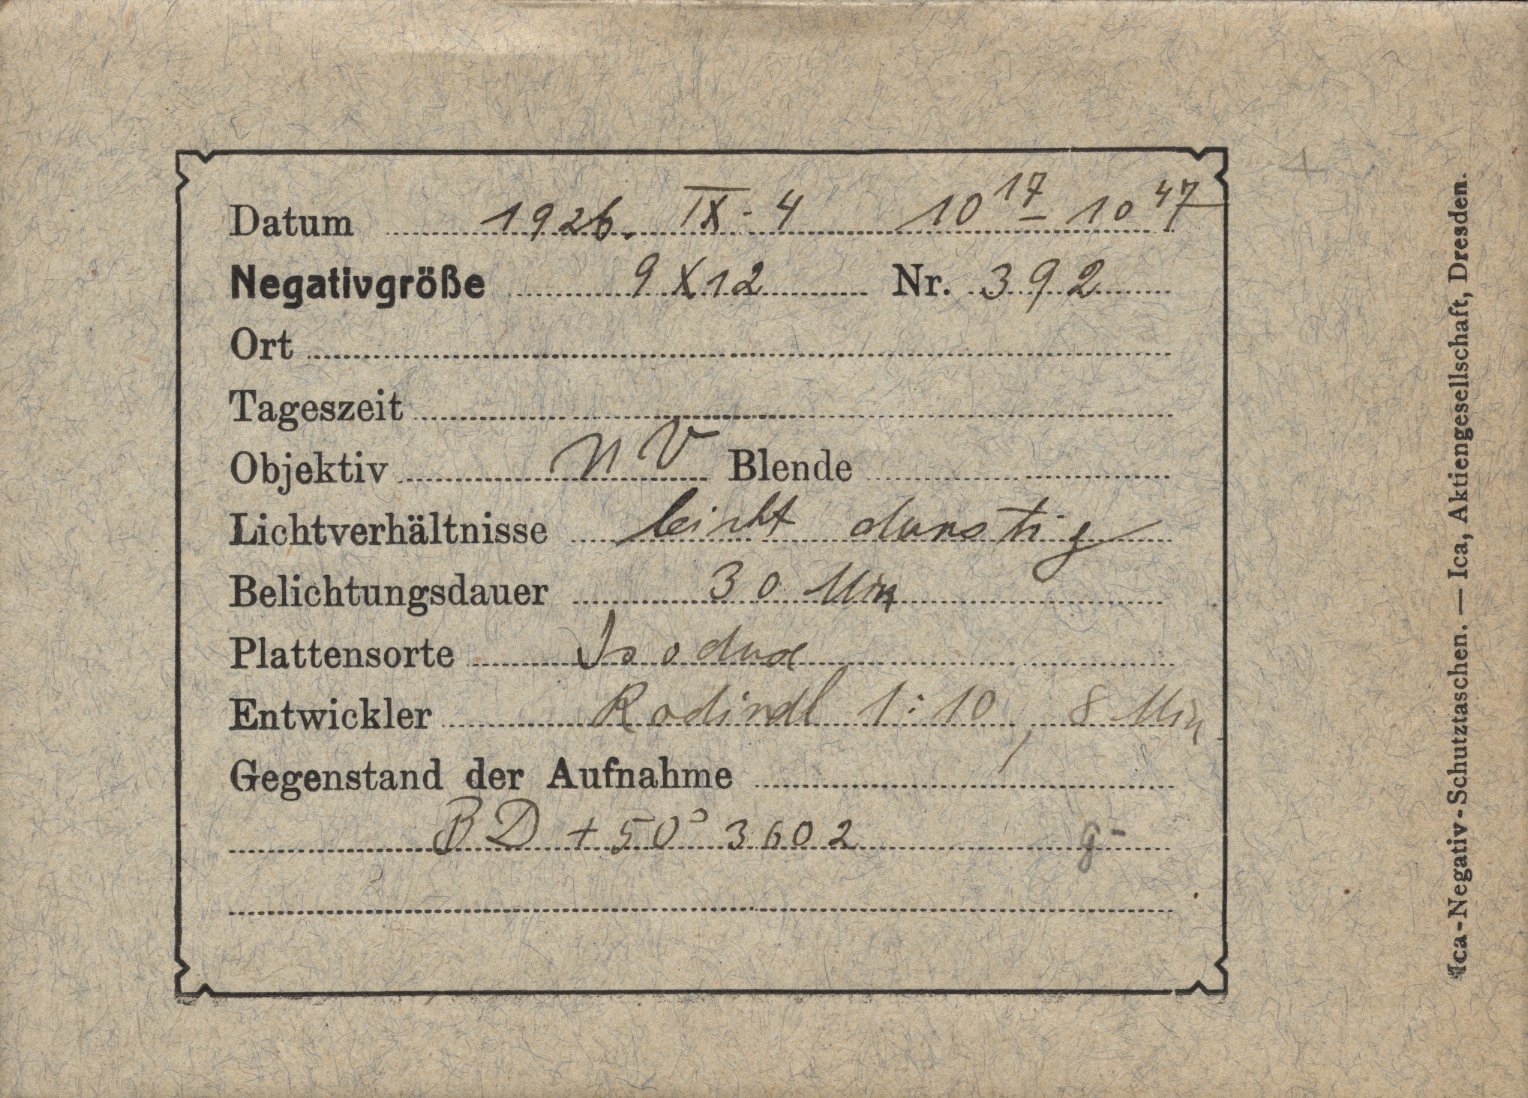 Datum 1926. IX. 4 10 17 – 10 47
Negativgröße 9 X 12 Nr. 392
Ort
Tageszeit
Objektiv NV Blende
Lichtverhältnisse leicht dunstig
Belichtungsdauer 30 Min
Plattensorte Isodux
Entwickler Rodindl 1:10, 8 Min
Gegenstand der Aufnahme
BD + 50° 3602 g-
Ica-Negativ-Schutztaschen. — Ica, Aktiengesellschaft, Dresden.